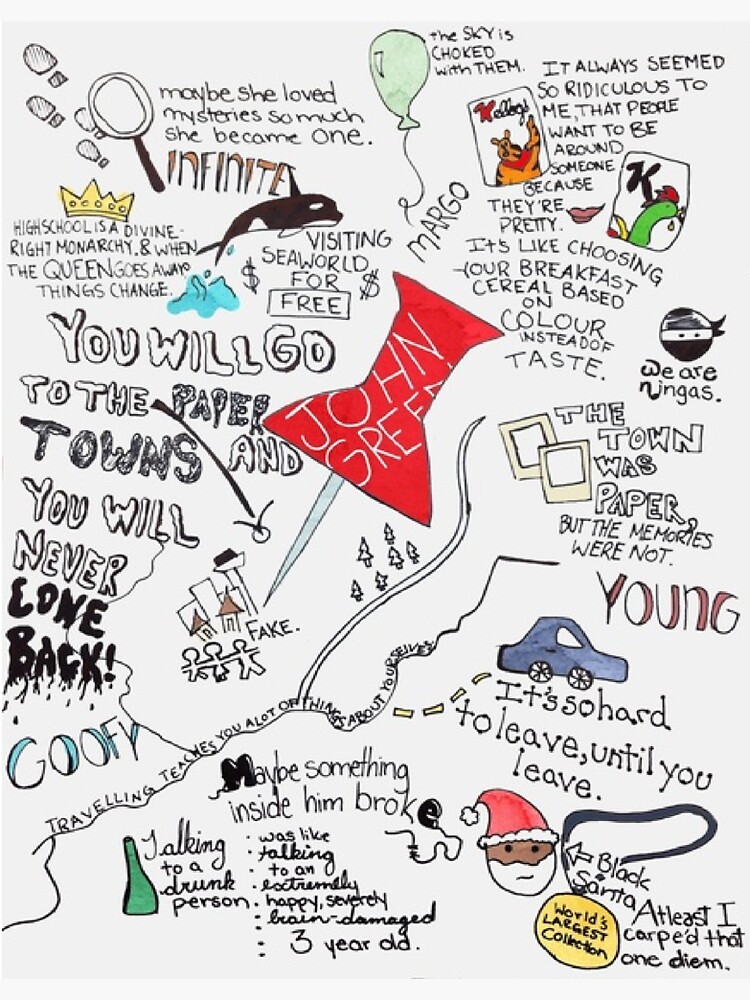 maybe she loved
mysteries so much
she became one.
INFINITE
the SKY is
CHOKED
with THEM.
MARGO
IT ALWAYS SEEMED
SO RIDICULOUS TO
ME, THAT PEOPLE
WANT TO BE
AROUND
SOMEONE
BECAUSE
THEY'RE
PRETTY.
IT'S LIKE CHOOSING
YOUR BREAKFAST
CEREAL BASED
ON
COLOUR
INSTEAD OF
TASTE.
Kellogg's
K
HIGHSCHOOL IS A DIVINE-
RIGHT MONARCHY. & WHEN
THE QUEEN GOES AWAY
THINGS CHANGE.
VISITING
$ SEAWORLD $
FOR
FREE
we are
ningas.
YOU WILL GO
TO THE PAPER
TOWNS AND
YOU WILL
NEVER
COME
BACK!
JOHN
GREEN
THE
TOWN
WAS
PAPER,
BUT THE MEMORIES
WERE NOT.
YOUNG
FAKE.
GOOFY
TRAVELLING TEACHES YOU A LOT OF THINGS ABOUT YOURSELVES
It's so hard
to leave, until you
leave.
Maybe something
inside him broke
Talking
to a
drunk
person
was like
talking
to an
extremely
happy, severely
brain-damaged
3 year old.
Black
Santa
World's
LARGEST
Collection
Atleast I
carpe'd that
one diem.